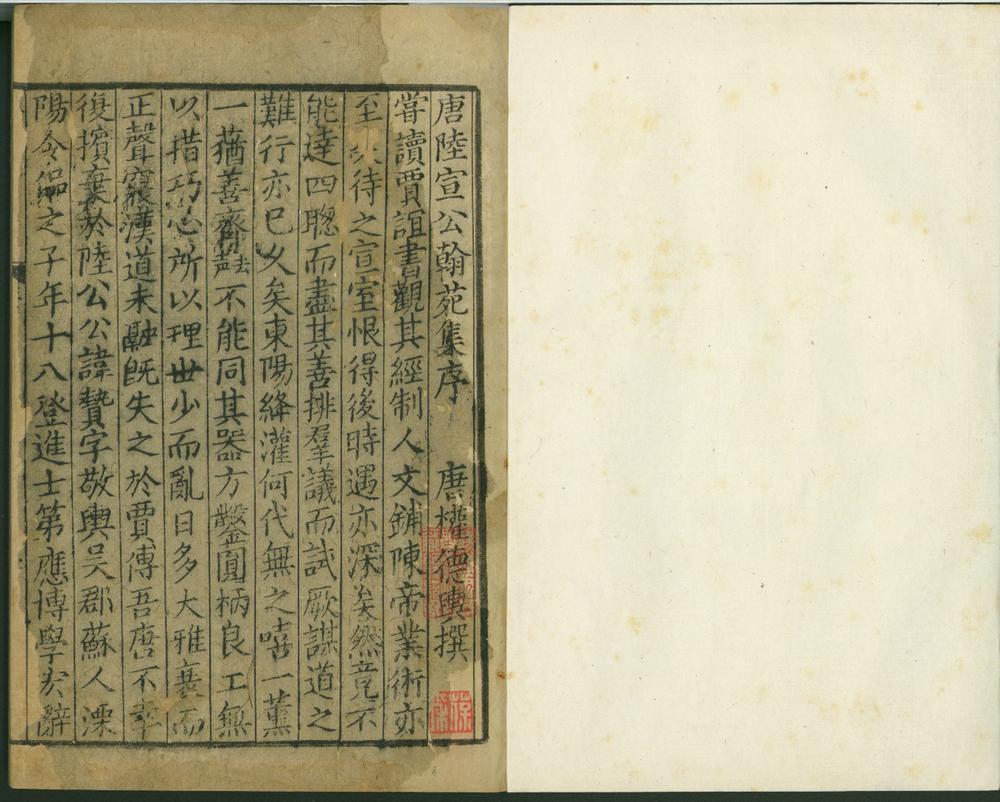 唐陸宣公翰苑集序 唐權德輿撰
甞讀賈誼書觀其經制人文鋪陳帝業術亦
至矣待之宣室恨得後時遇亦深矣然竟不
能達四聦而盡其善排羣議而試厥謀道之
難行亦已乆矣東陽絳灌何代無之嘻一薫
一蕕善齊不能同其器方鑿圓枘良工無
以措巧心所以理世少而亂日多大雅衰而
正聲寢漢道未融旣失之於賈傅吾唐不幸
復擯棄於陸公公諱贄字敬輿吴郡蘇人溧
陽令偘之子年十八登進士第應博學宏辭